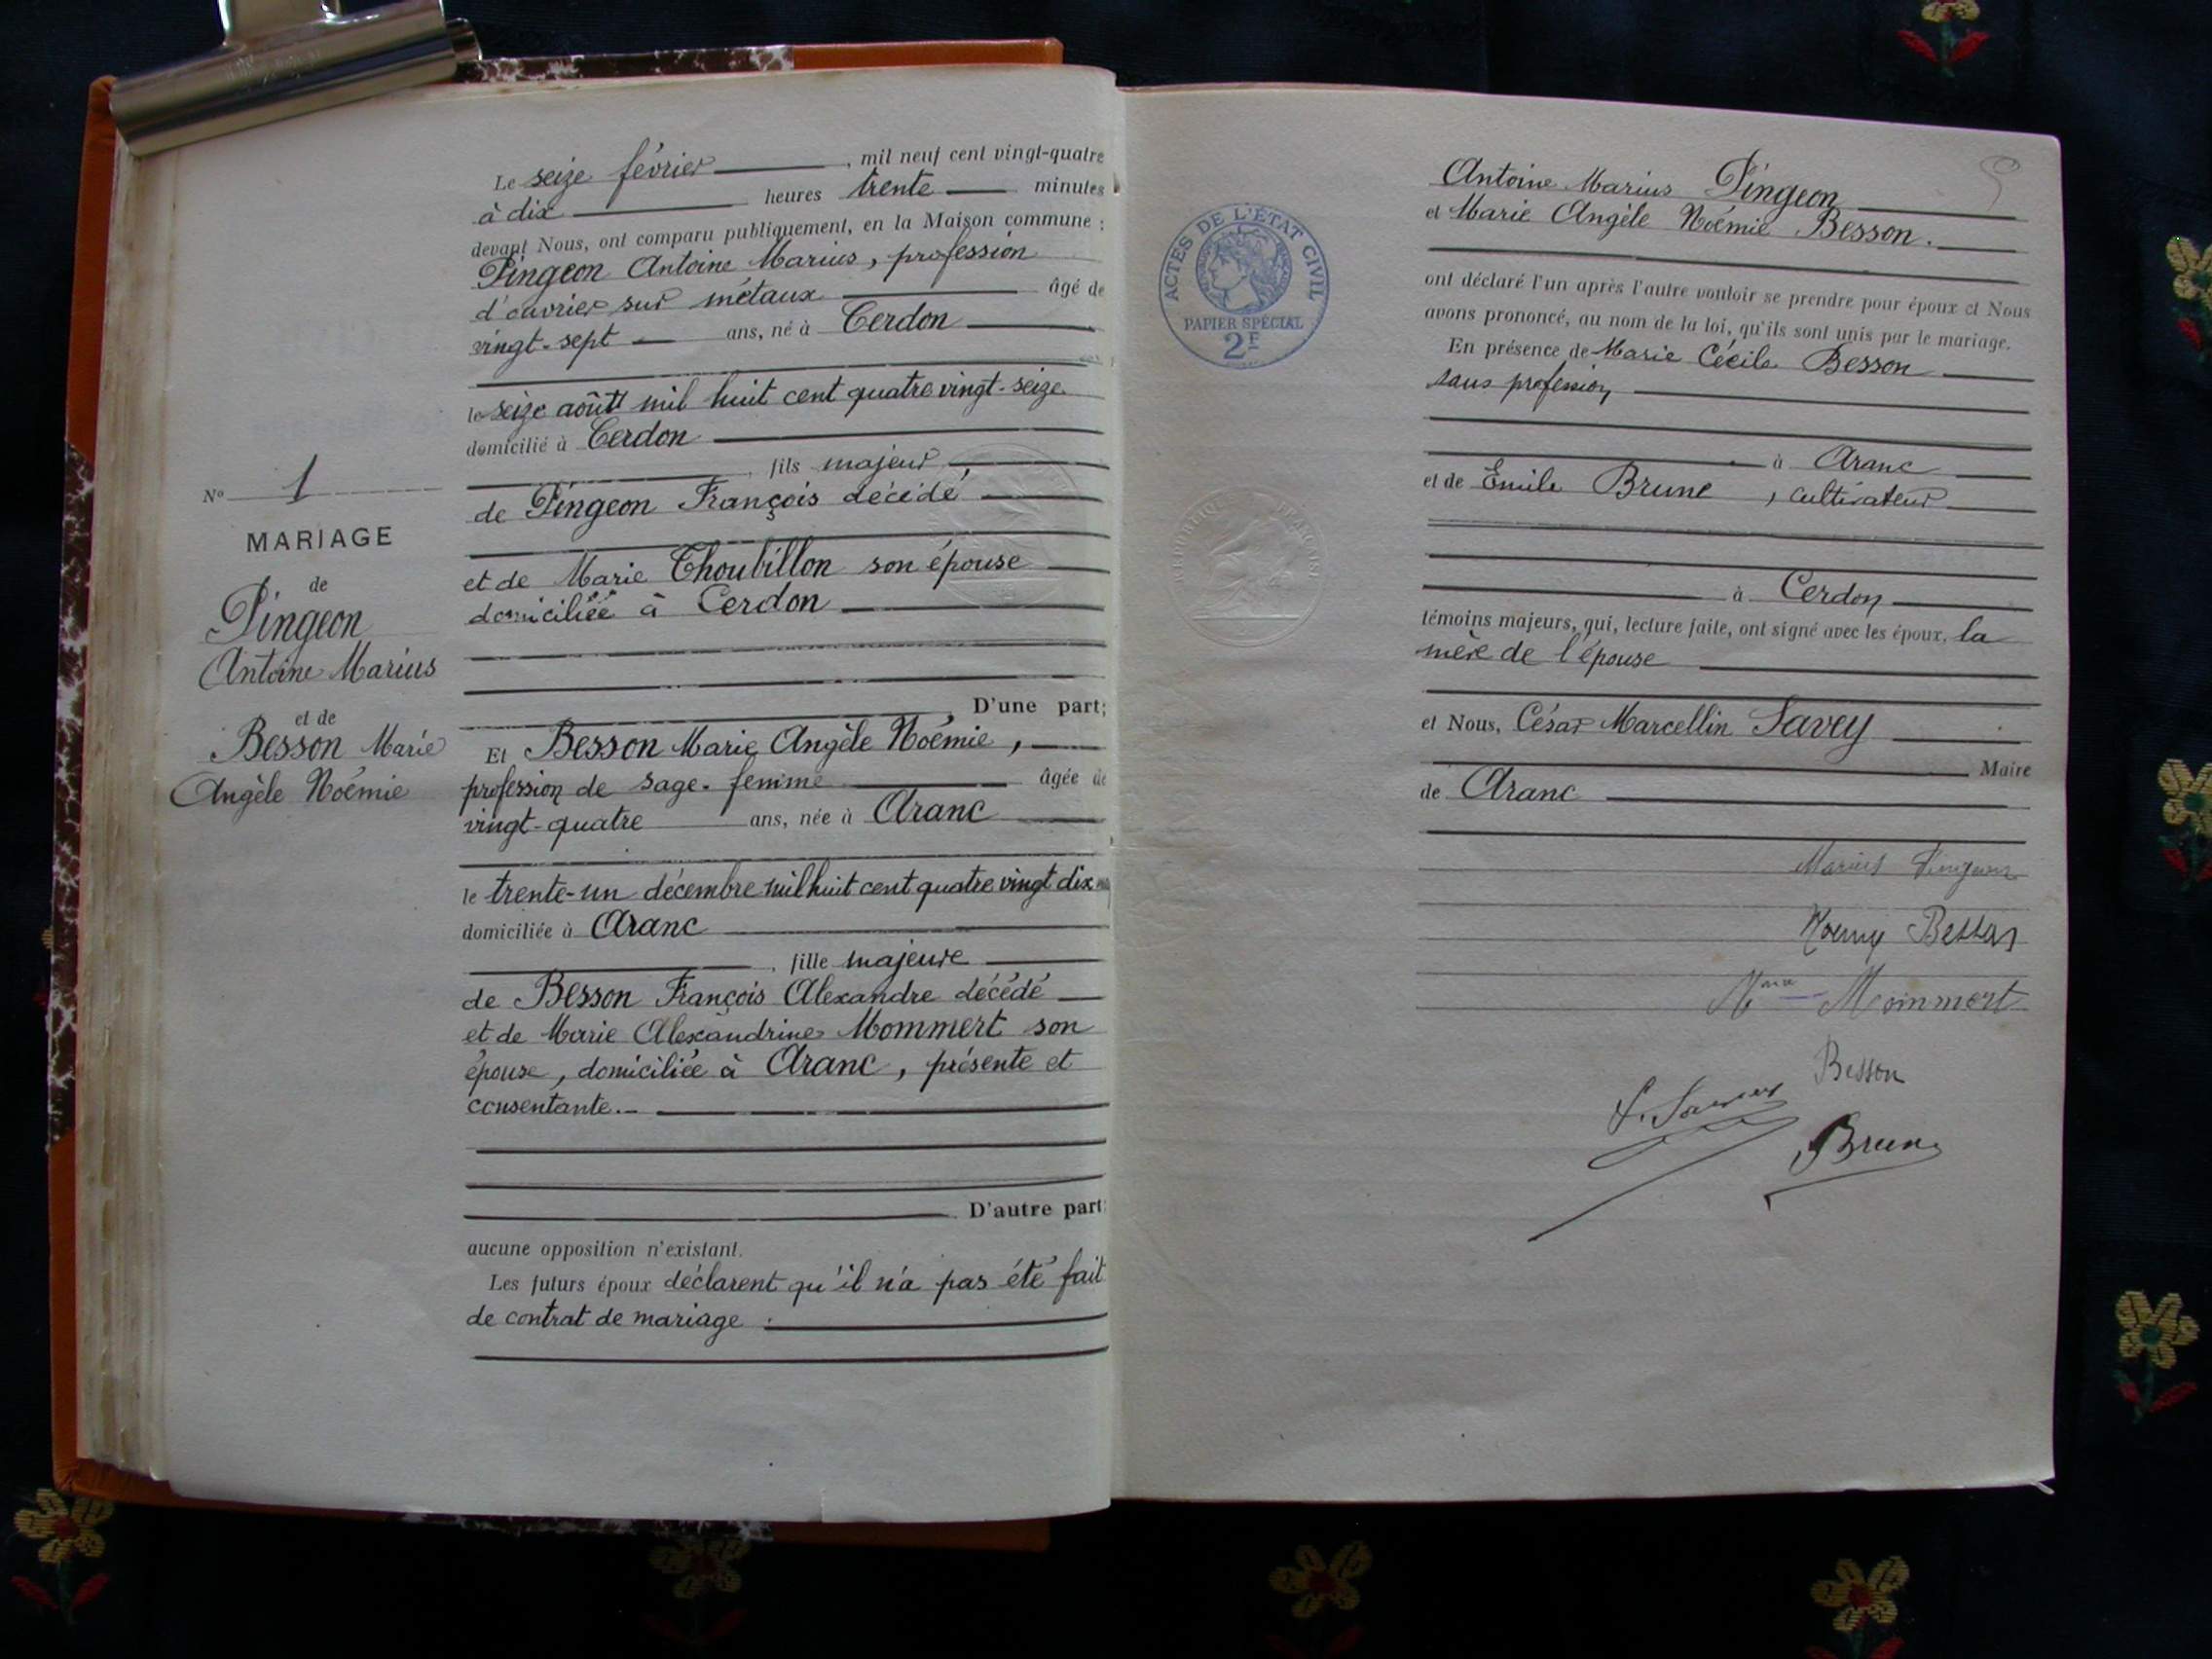 Le seize février, mil neuf cent vingt-quatre
à dix heures trente minutes
devant Nous, ont comparu publiquement, en la Maison commune :
Pingeon Antoine Marius, profession
d'ouvrier sur métaux âgé de
vingt-sept ans, né à Cerdon
le seize août mil huit cent quatre vingt-seize
domicilié à Cerdon
, fils majeur,
de Pingeon François décédé
et de Marie Thoubillon son épouse
domiciliée à Cerdon
D'une part;
Et Besson Marie Angèle Noémie,
profession de sage-femme âgée de
vingt-quatre ans, née à Aranc
le trente-un décembre mil huit cent quatre vingt dix
domiciliée à Aranc
, fille majeure
de Besson François Alexandre décédé
et de Marie Alexandrine Mommert son
épouse, domiciliée à Aranc, présente et
consentante.
D'autre part;
aucune opposition n'existant.
Les futurs époux déclarent qu'il n'a pas été fait
de contrat de mariage.
N° 1
MARIAGE
de
Pingeon
Antoine Marius
et de
Besson Marie
Angèle Noémie
ACTES DE L'ÉTAT CIVIL
PAPIER SPÉCIAL
2F
RÉPUBLIQUE FRANÇAISE
Antoine Marius Pingeon
et Marie Angèle Noémie Besson.
ont déclaré l'un après l'autre vouloir se prendre pour époux et Nous
avons prononcé, au nom de la loi, qu'ils sont unis par le mariage.
En présence de Marie Cécile Besson
sans profession
à Aranc
et de Emile Brune, cultivateur
à Cerdon
témoins majeurs, qui, lecture faite, ont signé avec les époux, la
mère de l'épouse
et Nous, César Marcellin Savey
Maire
de Aranc
Marius Pingeon
Noémy Besson
Mme Mommert
Besson
Brune